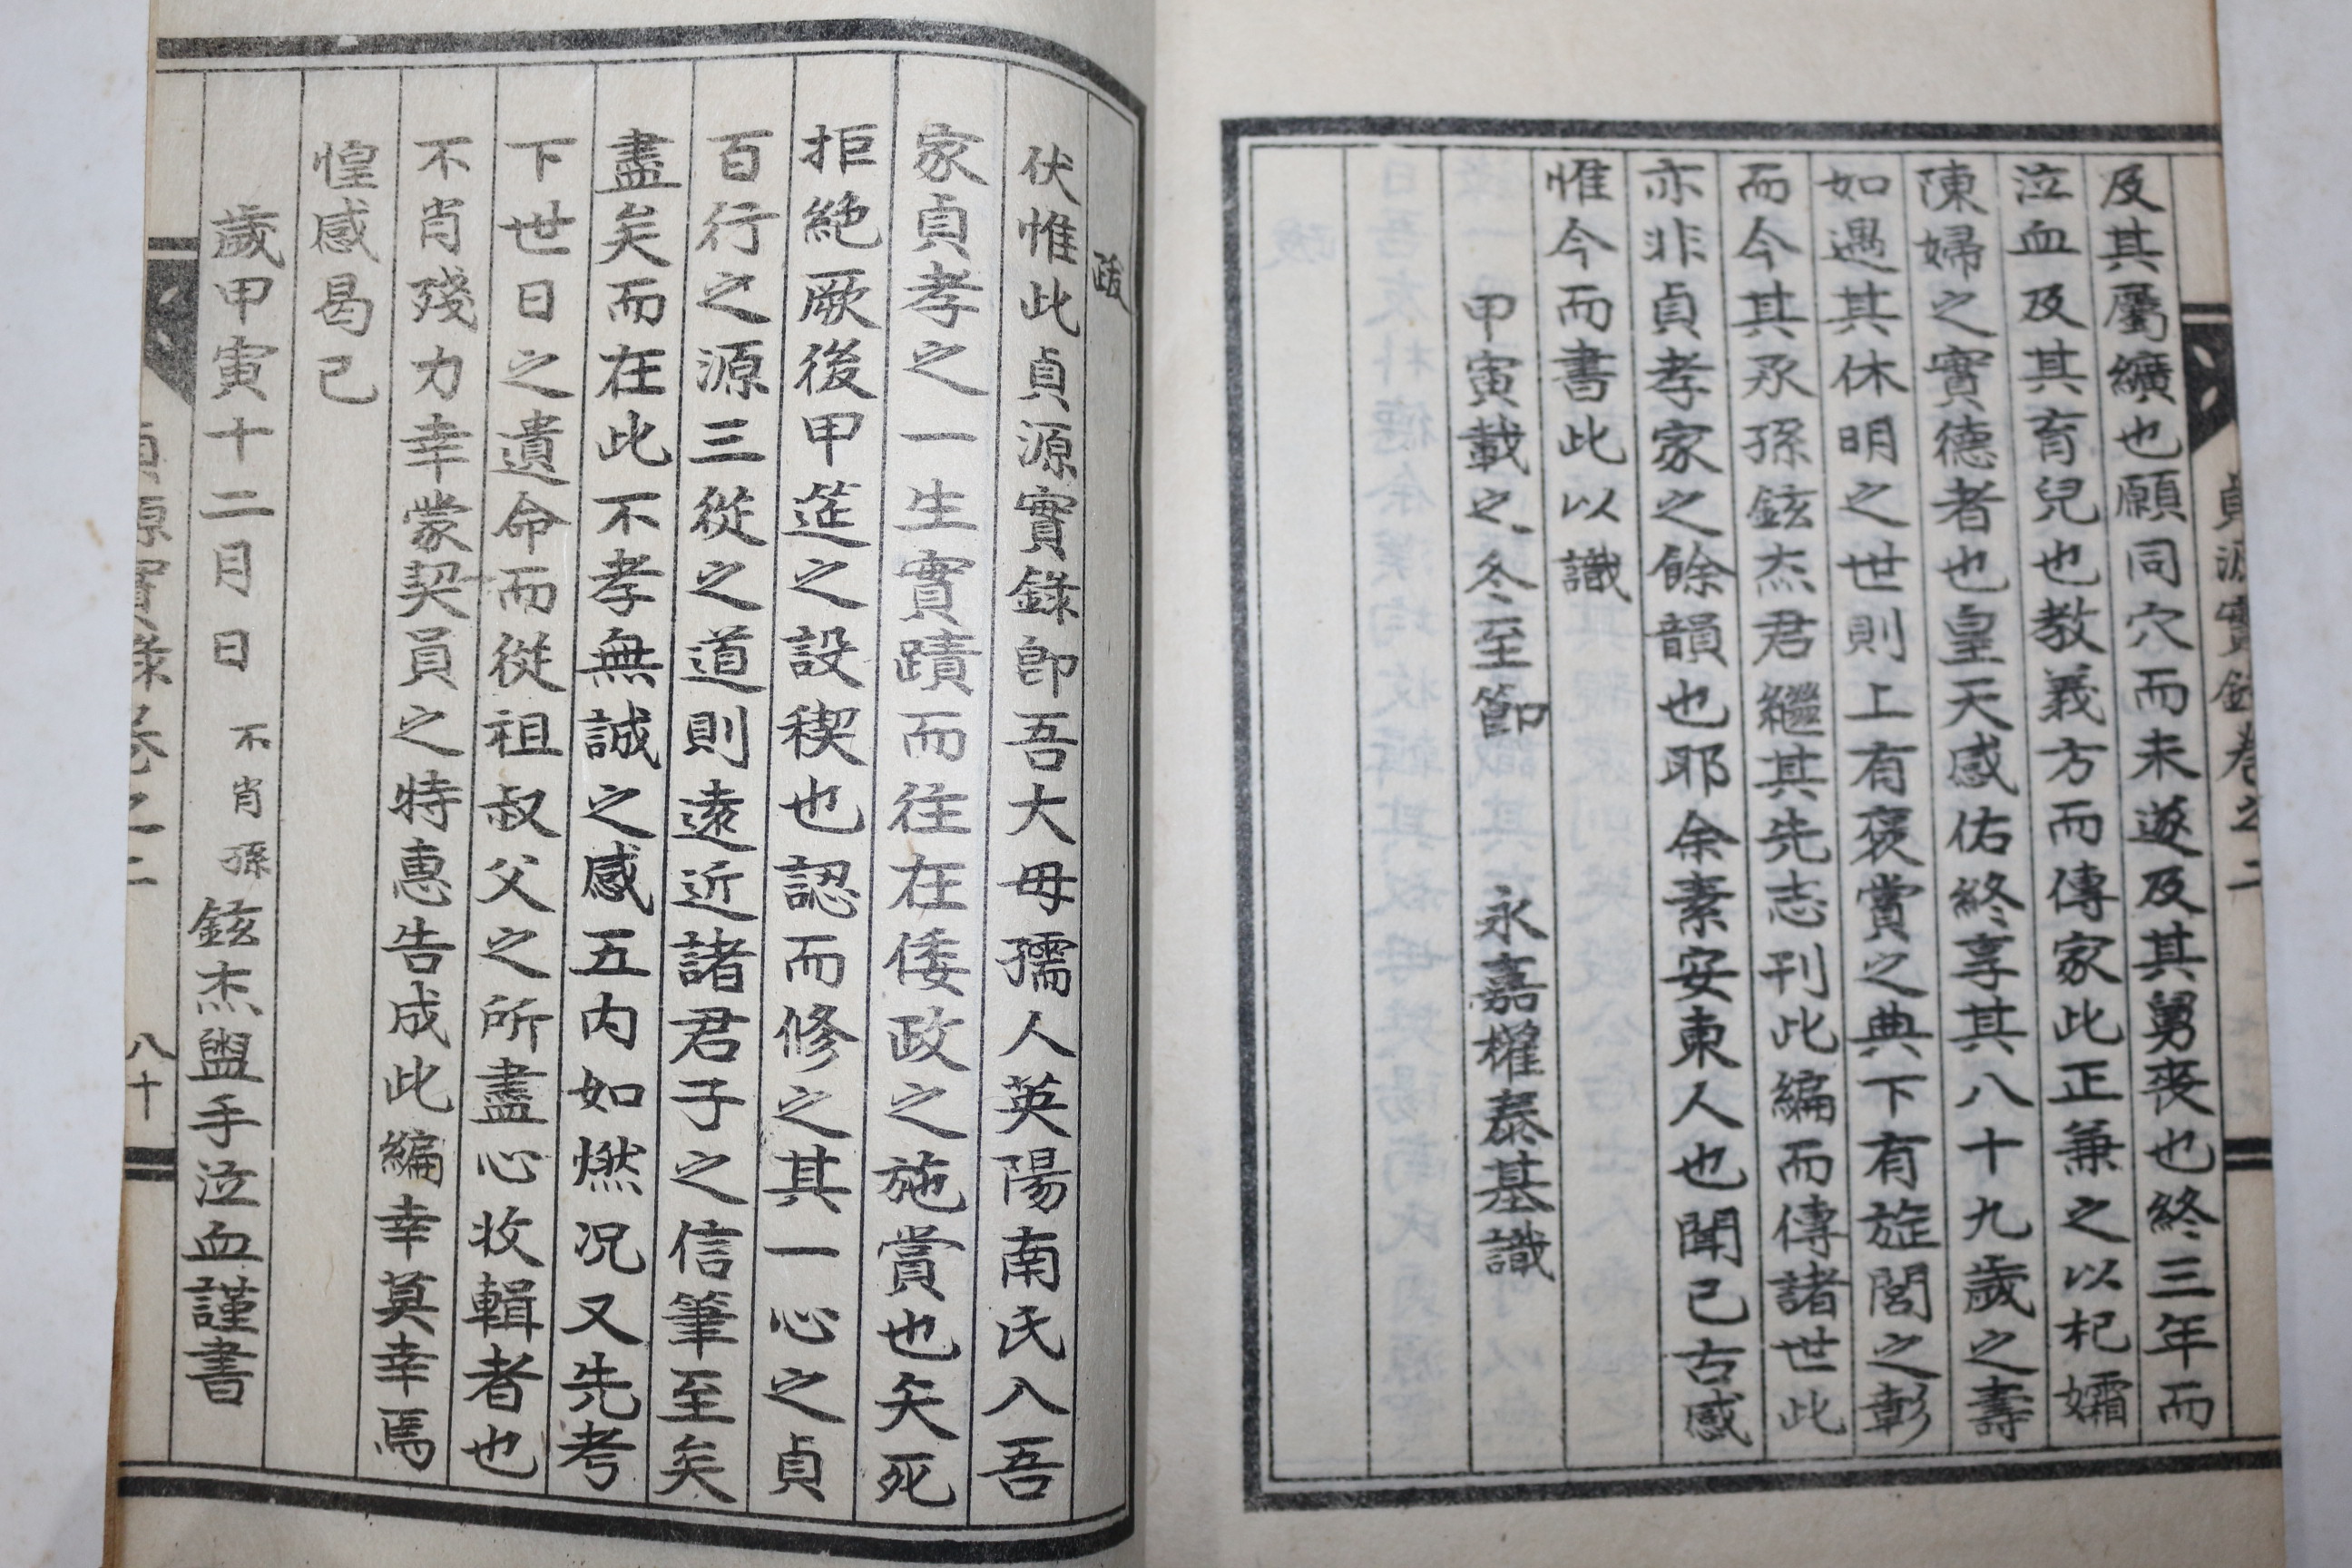 貞源實錄卷之二
及其屬纊也願同穴而未遂及其舅喪也終三年而
泣血及其育兒也教義方而傳家此正兼之以杞孀
陳婦之實德者也皇天感佑終享其八十九歲之壽
如遇其休明之世則上有褒賞之典下有旋閭之彰
而今其承孫鉉杰君繼其先志刊此編而傳諸世此
亦非貞孝家之餘韻也耶余素安東人也聞己古感
惟今而書此以識
甲寅載之冬至節 永嘉權泰基識
跋
伏惟此貞源實錄卽吾大母孺人英陽南氏入吾
家貞孝之一生實蹟而往在倭政之施賞也矢死
拒絶厥後甲筵之設稧也認而修之其一心之貞
百行之源三從之道則遠近諸君子之信筆至矣
盡矣而在此不孝無誠之感五內如燃况又先考
下世日之遺命而從祖叔父之所盡心收輯者也
不肖殘力幸蒙契員之特惠告成此編幸莫幸焉
惶感曷已
歲甲寅十二月 日 不肖孫鉉杰盥手泣血謹書
貞源實錄卷之二 八十